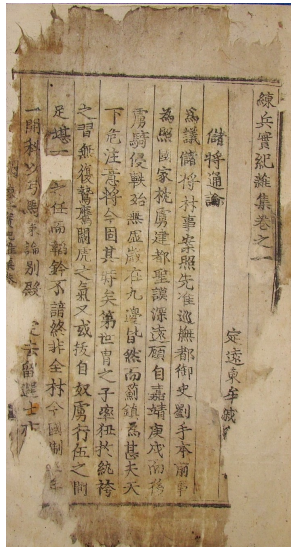 練兵實紀雜集卷之一
定遠東牟戚
儲將通論
為議儲將材事案照先准巡撫都御史劉手本前事
為照國家挑虜建都聖謨深遠頃自嘉靖庚戌而後
虜騎侵軼殆無虛歲在九邊皆然而薊鎮為甚夫天
下危注意將今固其時矣第世胄之子率狃於紈袴
之習無復鷙鷹鬪虎之氣又或拔自奴虜行伍之間
足堪一 之任而韜鈐不諳終非全材今國制 年
一開科以弓馬策論別殿 定去留選士